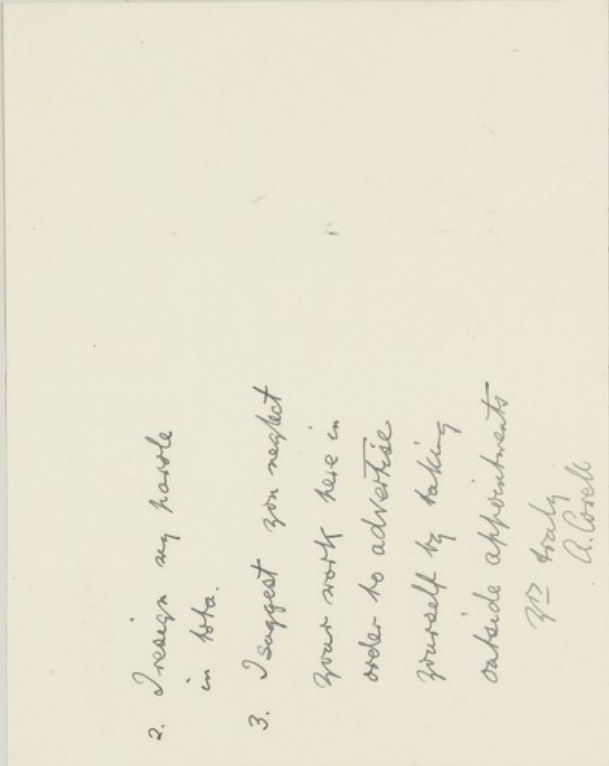 2. I resign my parole
in tota.
3. I suggest you neglect
your work here in
order to advertise
yourself by taking
outside appointments
yrs truly